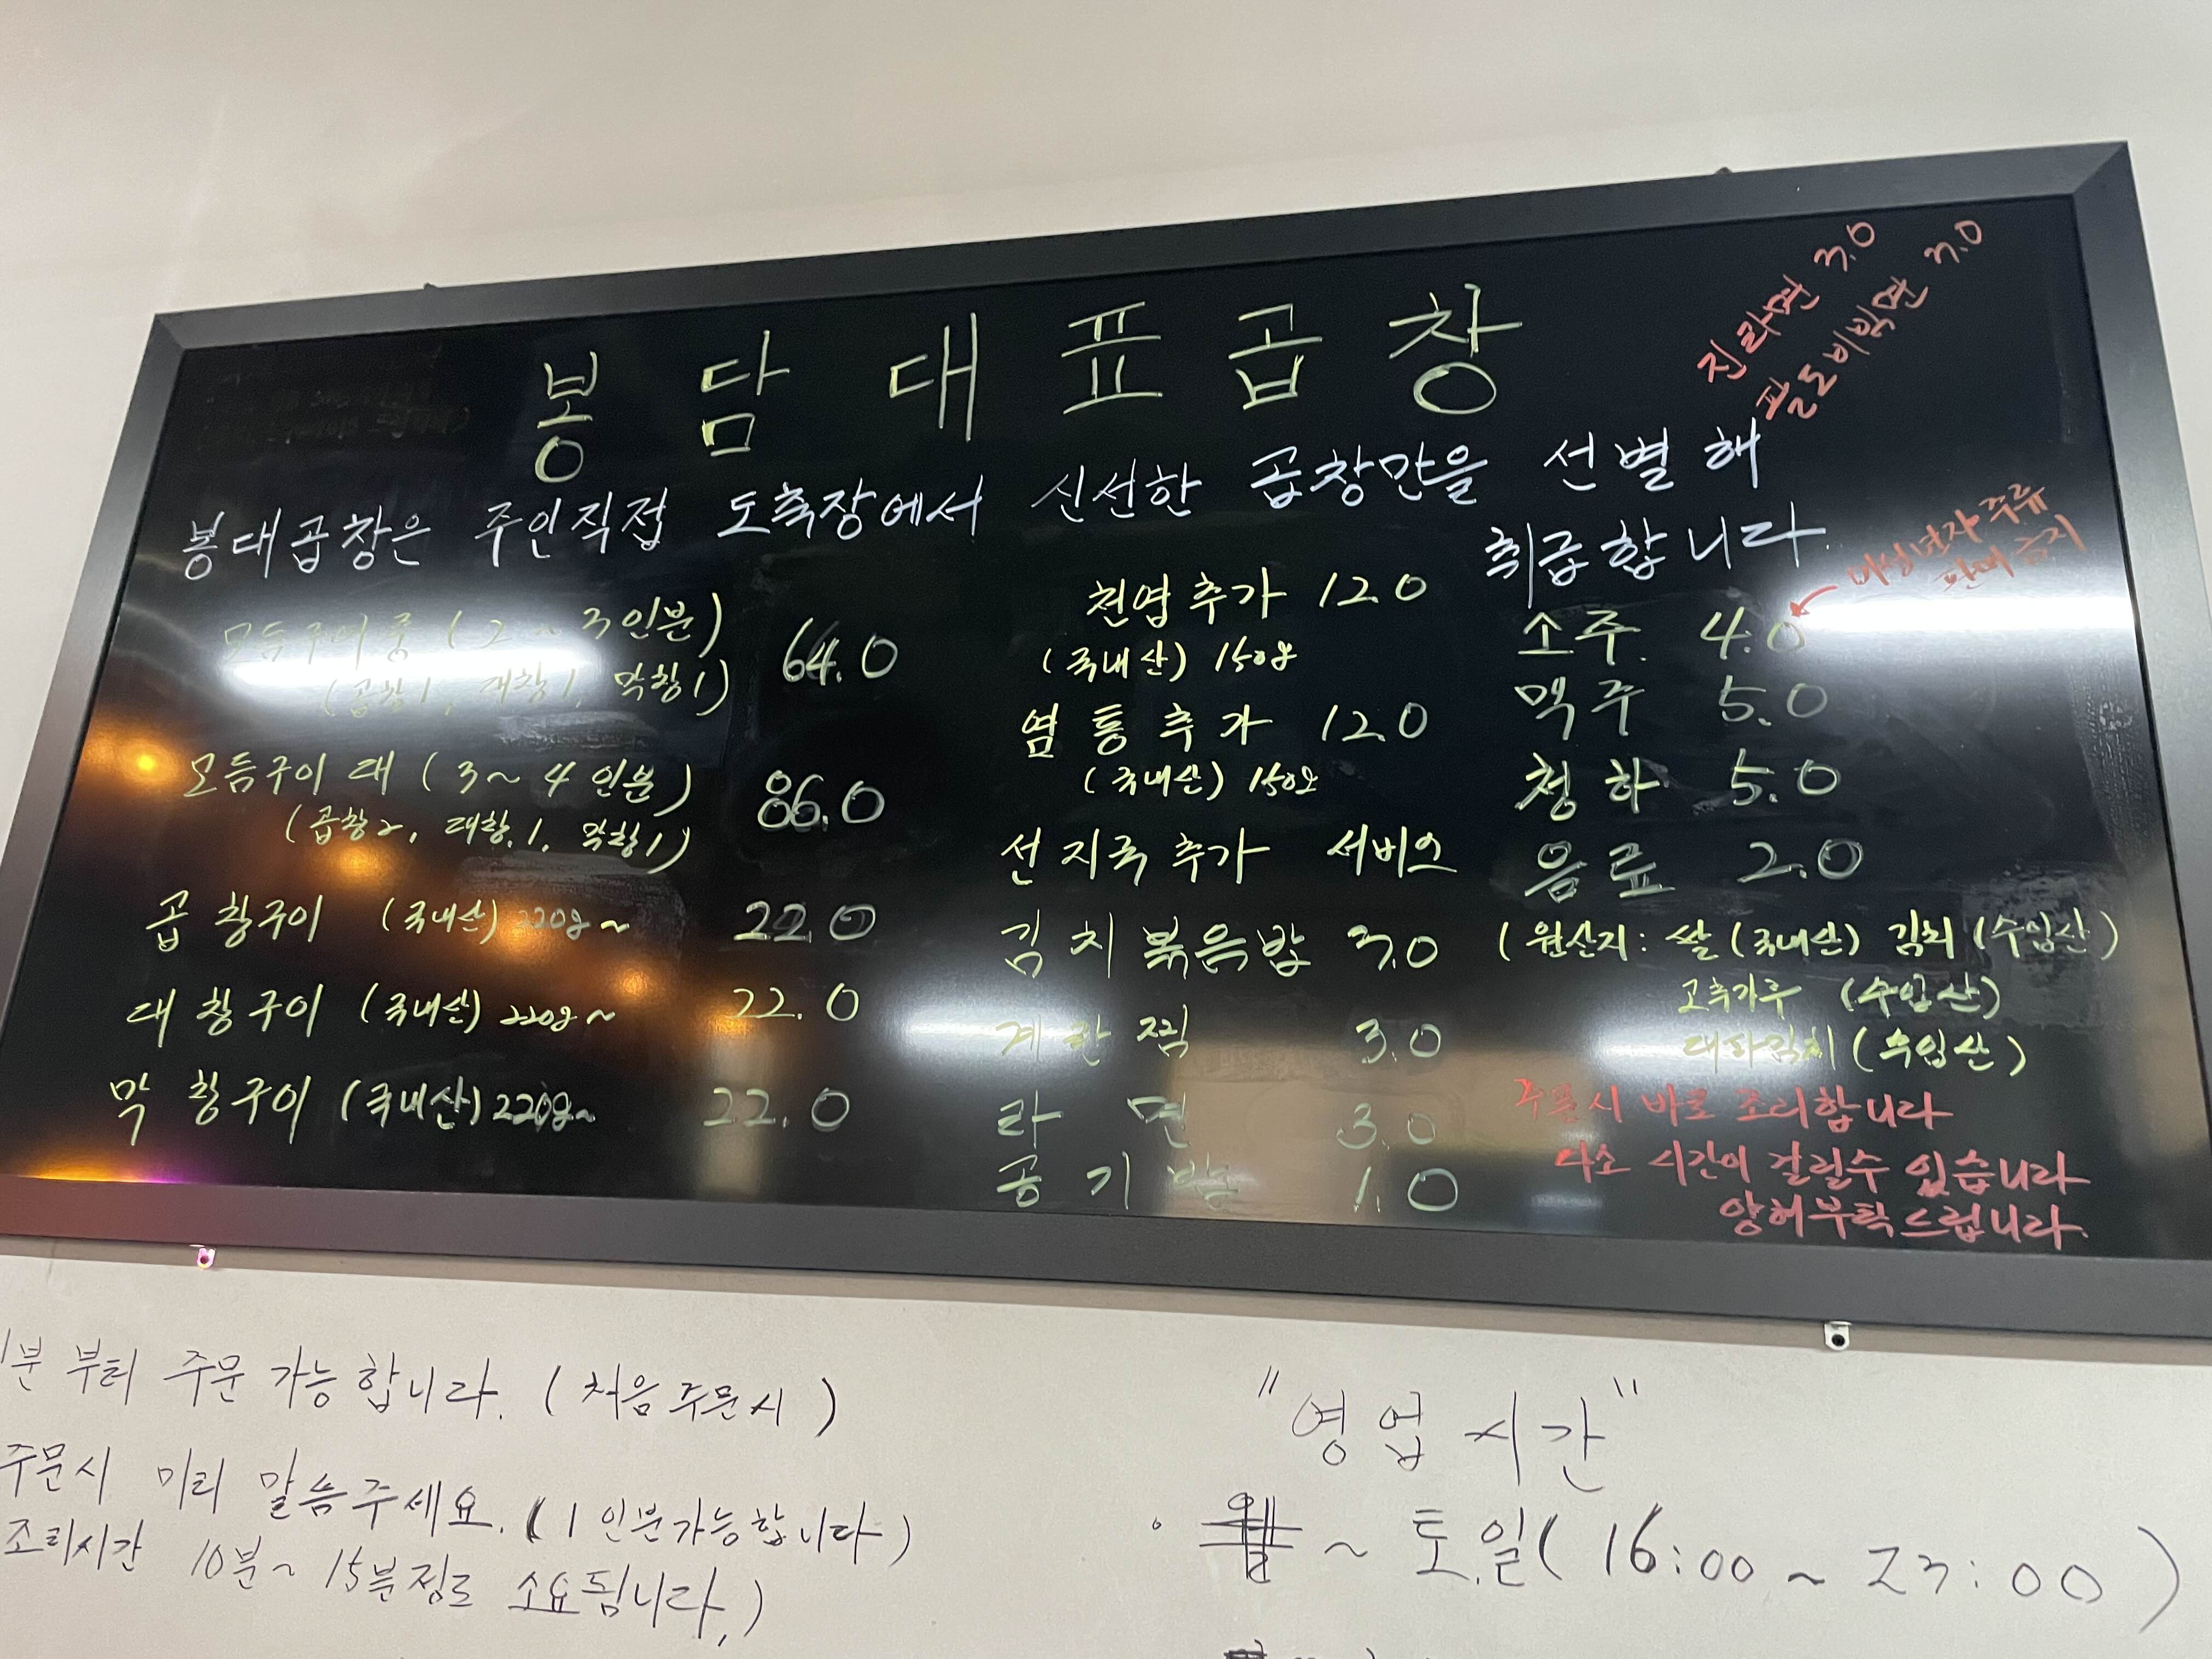 봉담대표곱창
진라면 3.0
팔도비빔면 3.0
봉대곱창은 주인직접 도축장에서 신선한 곱창만을 선별해
취급합니다.
모듬구이중 (2~3인분) 64.0
(곱창1, 대창1, 막창1)
모듬구이 대 (3~4인분) 86.0
(곱창2, 대창.1, 막창1)
곱창구이 (국내산) 220g~ 22.0
대창구이 (국내산) 220g~ 22.0
막창구이 (국내산) 220g~ 22.0
천엽추가 12.0
(국내산) 150g
염통추가 12.0
(국내산) 150g
선지국추가 서비스
김치볶음밥 3.0
계란찜 3.0
라면 3.0
공기밥 1.0
미성년자 주류
판매 금지
소주. 4.0
맥주 5.0
청하 5.0
음료 2.0
(원산지: 쌀(국내산) 김치(수입산)
고추가루 (수입산)
대파김치(수입산)
주문시 바로 조리합니다
다소 시간이 걸릴수 있습니다
양해부탁드립니다.
분 부터 주문 가능합니다. (처음주문시)
주문시 미리 말씀주세요. (1인분가능합니다)
조리시간 10분~15분정도 소요됩니다.)
"영업시간"
~ 토.일(16:00~23:00)